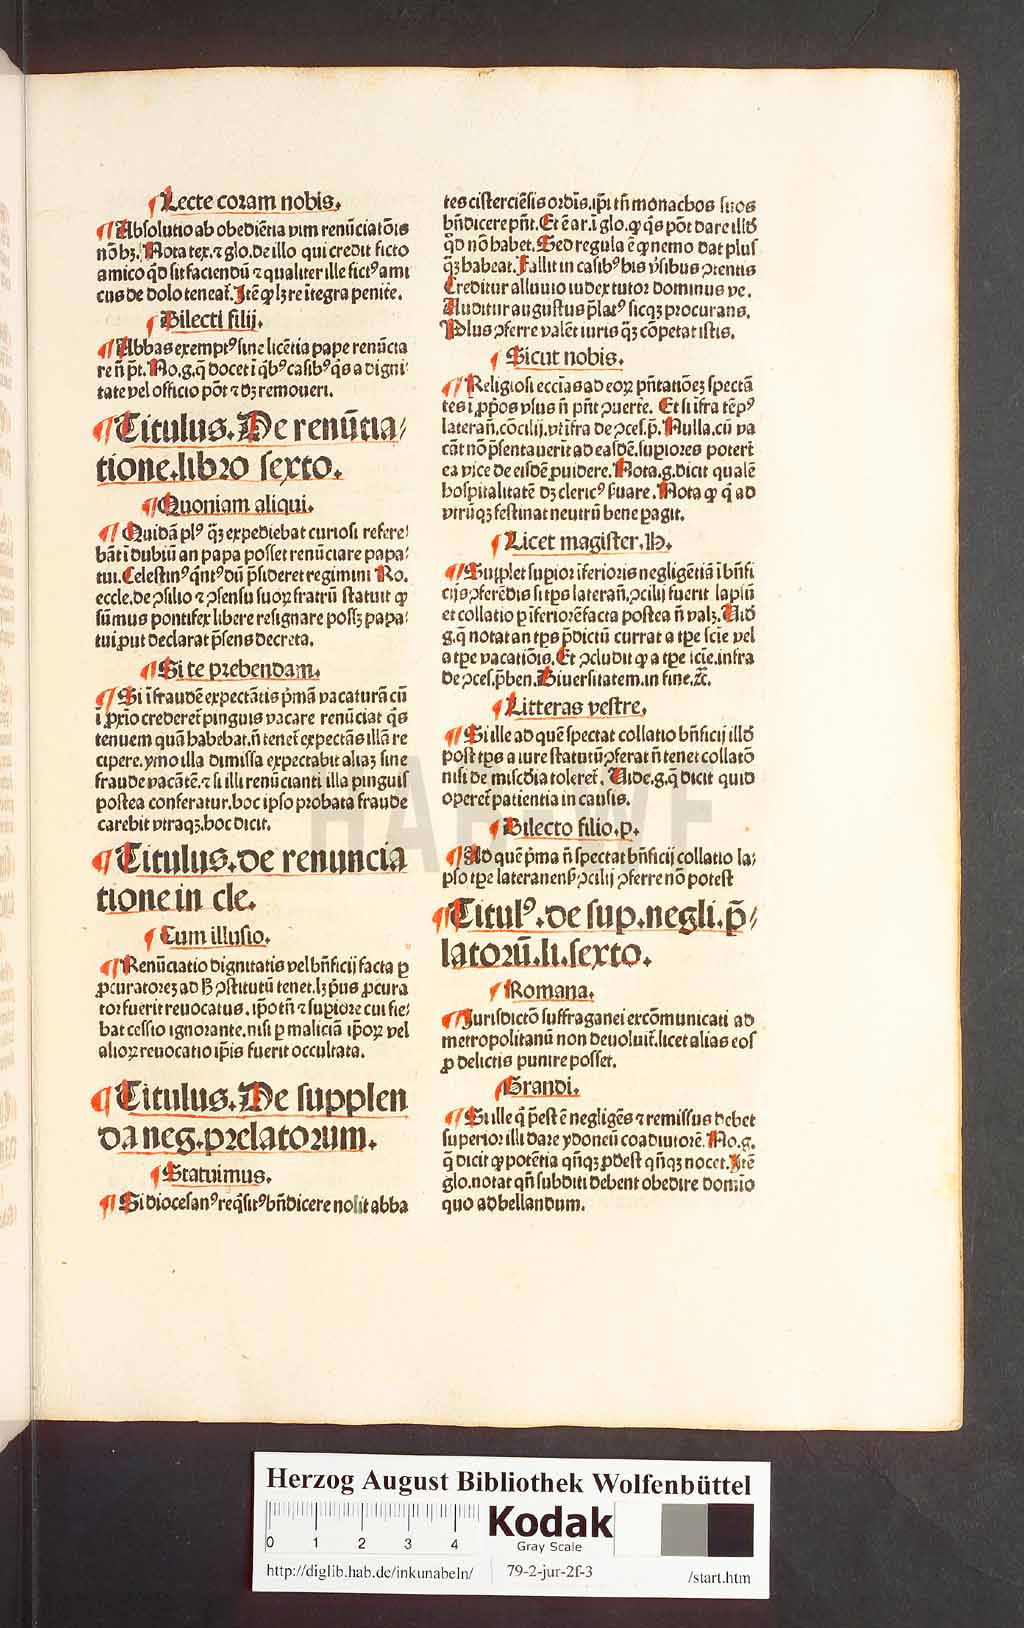 ¶ Lecte coram nobis.
¶ Absolutio ab obediẽtia vim renũciatõis
nõ hꝫ. Nota tex. ⁊ glo. de illo qui credit ficto
amico q̄d sit faciendũ ⁊ qualiter ille fictꝰ ami
cus de dolo teneat̃. Itẽ ꝙ lꝫ re ĩtegra penite.
¶ Dilecti filij.
¶ Abbas exemptꝰ sine licẽtia pape renũcia
re ñ p̃t. No. g. q̃ docet ĩ q̃bꝰ casibꝰ q̃s a digni
tate vel officio põt ⁊ dꝫ remoueri.
¶ Titulus. De renũcia/
tione. libro sexto.
¶ Quoniam aliqui.
¶ Quidã plꝰ q̃ꝫ expediebat curiosi refere
bãt ĩ dubiũ an papa posset renũciare papa
tui. Celestinꝰ q̃ntꝰ dũ p̃sideret regimini Ro.
eccle. de ꝯsilio ⁊ ꝯsensu suoꝝ fratrũ statuit ꝙ
sũmus pontifex libere resignare possꝫ papa
tui, put declarat p̃sens decreta.
¶ Si te prebendam.
¶ Si ĩ fraudẽ expectãtis p̃mã vacaturã cũ
ĩ ꝓxĩo crederet̃ pinguis vacare renũciat q̃s
tenuem quã habebat. ñ tenet̃ expectãs illã re
cipere. ymo illa dimissa expectabit aliaꝫ sine
fraude vacãtẽ. ⁊ si illi renũcianti illa pinguis
postea conferatur. hoc ipso probata fraude
carebit vtraqꝫ. hoc dicit.
¶ Titulus. de renuncia
tione in cle.
¶ Cum illusio.
¶ Renũciatio dignitatis vel bñficij facta ꝑ
ꝓcuratoreꝫ ad ꝯstitutũ tenet. lꝫ p̃us ꝓcura
tor fuerit reuocatus. ip̃o tñ ⁊ supiore cui fie
bat cessio ignorante. nisi ꝑ maliciã ip̃oꝝ vel
alioꝝ reuocatio ip̃is fuerit occultata.
¶ Titulus. De supplen
da neg. prelatorum.
¶ Statuimus.
¶ Si diocesanꝰ req̃sitꝰ bñdicere nolit abba
tes cisterciẽsis ordĩs. ip̃i tñ monachos suos
bñdicere pñt. Et ẽ ar. ĩ glo. ꝙ q̃s põt dare illd̃
q̄d nõ habet. Sed regula ẽ ꝙ nemo dat plus
q̃ꝫ habeat. Fallit in casibꝰ his v̾sibus ꝯtentis
Creditur alluuio iudex tutor dominus ve.
Auditur augustus p̃latꝰ sicqꝫ procurans.
Plus ꝯferre valẽt iuris q̃ꝫ cõpetat istis.
¶ Sicut nobis.
¶ Religiosi eccĩas ad eoꝝ pñtatiõeꝫ spectã
tes ĩ ꝓp̃os vsus ñ pñt ꝯuerte. Et si ĩfra tẽpꝰ
laterañ. cõcilij. vt ĩfra de ꝯces. p̃. Nulla. cũ va
cãt nõ p̃sentauerĩt ad easdẽ. supiores poterĩt
ea vice de eisdẽ ꝓuidere. Nota. g. dicit qualẽ
hospitalitatẽ dꝫ clericꝰ s̾uare. Nota ꝙ q̃ ad
vtrũqꝫ festinat neutrũ bene ꝑagit.
¶ Licet magister. H.
¶ Supplet supior ĩferioris negligẽtiã ĩ bñfi
cijs ꝯferẽdis si tp̃s laterañ. ꝯcilij fuerit lapsũ
et collatio ꝑ ĩferiorẽ facta postea ñ valꝫ. Vid̃
g. q̃ notat an tp̃s p̃dictũ currat a tp̃e scĩe vel
a tp̃e vacatiõis. Et ꝯcludit ꝙ a tp̃e scĩe. infra
de ꝯces. p̃ben. Diuersitatem. in fine. ⁊c̃.
¶ Litteras vestre.
¶ Si ille ad quẽ spectat collatio bñficij illd̃
post tp̃s a iure statutũ ꝯferat ñ tenet collatõ
nisi de misc̃dia toleret̃. Vide. g. q̃ dicit quid
operet̃ patientia in causis.
¶ Dilecto filio. p.
¶ Ad quẽ p̃ma ñ spectat bñficij collatio la
pso tp̃e lateranens̃ ꝯcilij ꝯferre nõ potest
¶ Titulꝰ. de sup. negli. p̃/
latorũ. li. sexto.
¶ Romana.
¶ Jurisdictõ suffraganei excõmunicati ad
metropolitanũ non deuoluit̃. licet alias eos
ꝓ delictis punire posset.
¶ Grandi.
¶ Si ille q̃ p̃est ẽ negligẽs ⁊ remissus debet
superior illi dare ydoneũ coadiutorẽ. No. g.
q̃ dicit ꝙ potẽtia qñqꝫ ꝓdest qñqꝫ nocet. Itẽ
glo. notat qñ subditi debent obedire domĩo
quo ad bellandum.
HAB-WF
Herzog August Bibliothek Wolfenbüttel
0 1 2 3 4
Kodak
Gray Scale
http://diglib.hab.de/inkunabeln/ 79-2-jur-2f-3 /start.htm